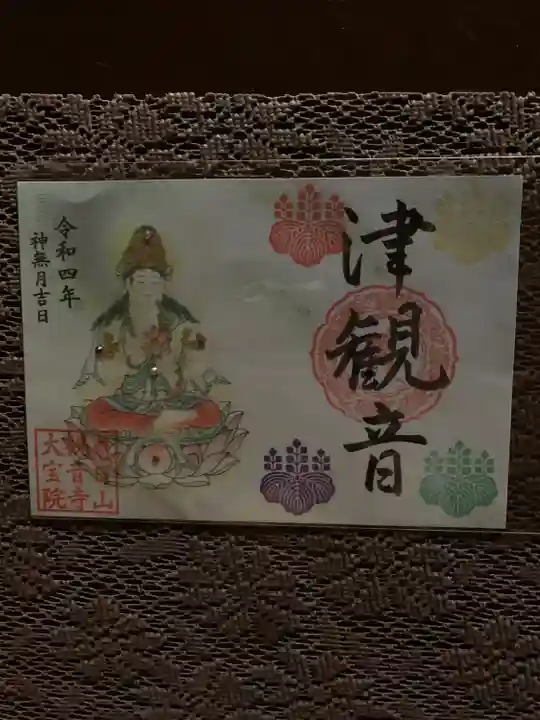 津観音
令和四年
神無月吉日
山
観音寺
大宝院